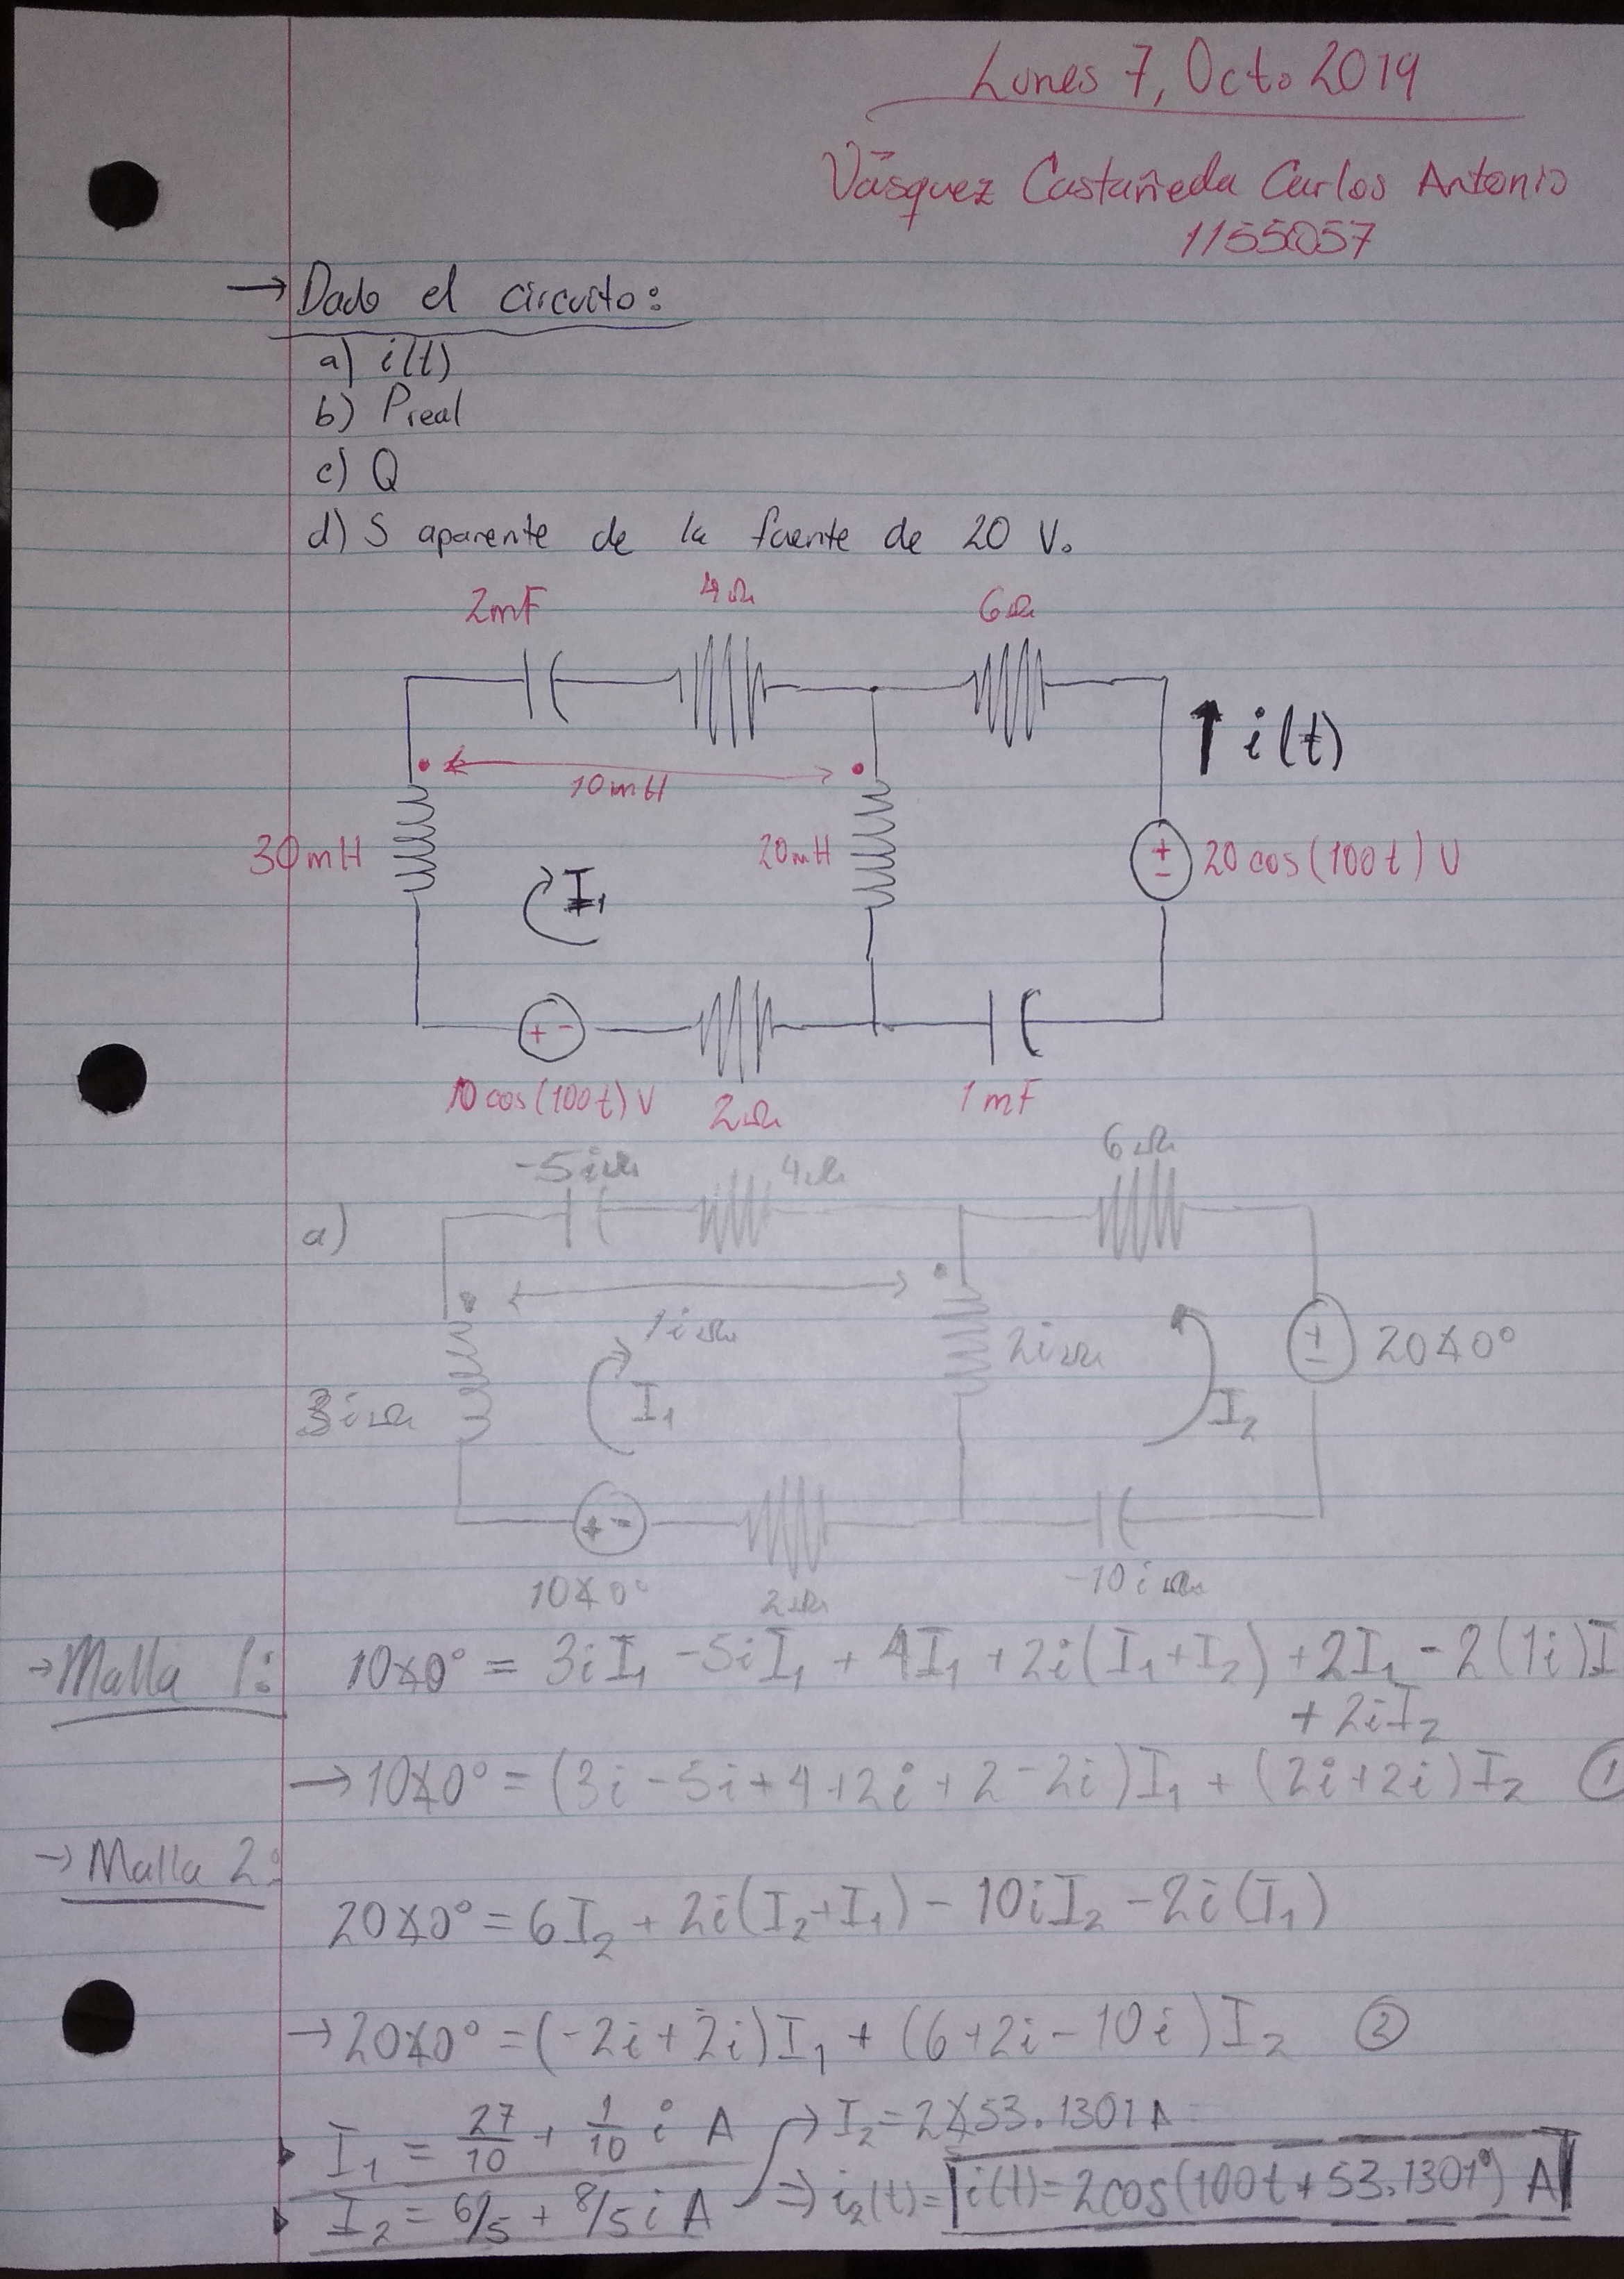 Lunes 7, Octo 2019
Vásquez Castañeda Carlos Antonio
1155057
→ Dado el circuito:
a) i(t)
b) Preal
c) Q
d) S aparente de la fuente de 20 V.
2mF 4Ω 6Ω
i(t)
10mH
30mH I₁ 20mH + - 20 cos(100t) V
+ -
10 cos(100t) V 2Ω 1mF
-5iΩ 4Ω 6Ω
a)
1iΩ
3iΩ I₁ 2iΩ I₂ + - 20∡0°
+ -
10∡0° 2Ω -10iΩ
→ Malla 1: 10∡0° = 3iI₁ - 5iI₁ + 4I₁ + 2i(I₁+I₂) + 2I₁ - 2(1i)I
+ 2iI₂
→ 10∡0° = (3i - 5i + 4 + 2i + 2 - 2i)I₁ + (2i + 2i)I₂ ①
→ Malla 2:
20∡0° = 6I₂ + 2i(I₂+I₁) - 10iI₂ - 2i(I₁)
→ 20∡0° = (-2i + 2i)I₁ + (6 + 2i - 10i)I₂ ②
I₁ = 27/10 + 1/10 i A → I₂ = 2∡53.1301 A
I₂ = 6/5 + 8/5 i A ⇒ i₂(t) = i(t) = 2cos(100t + 53.1301°) A